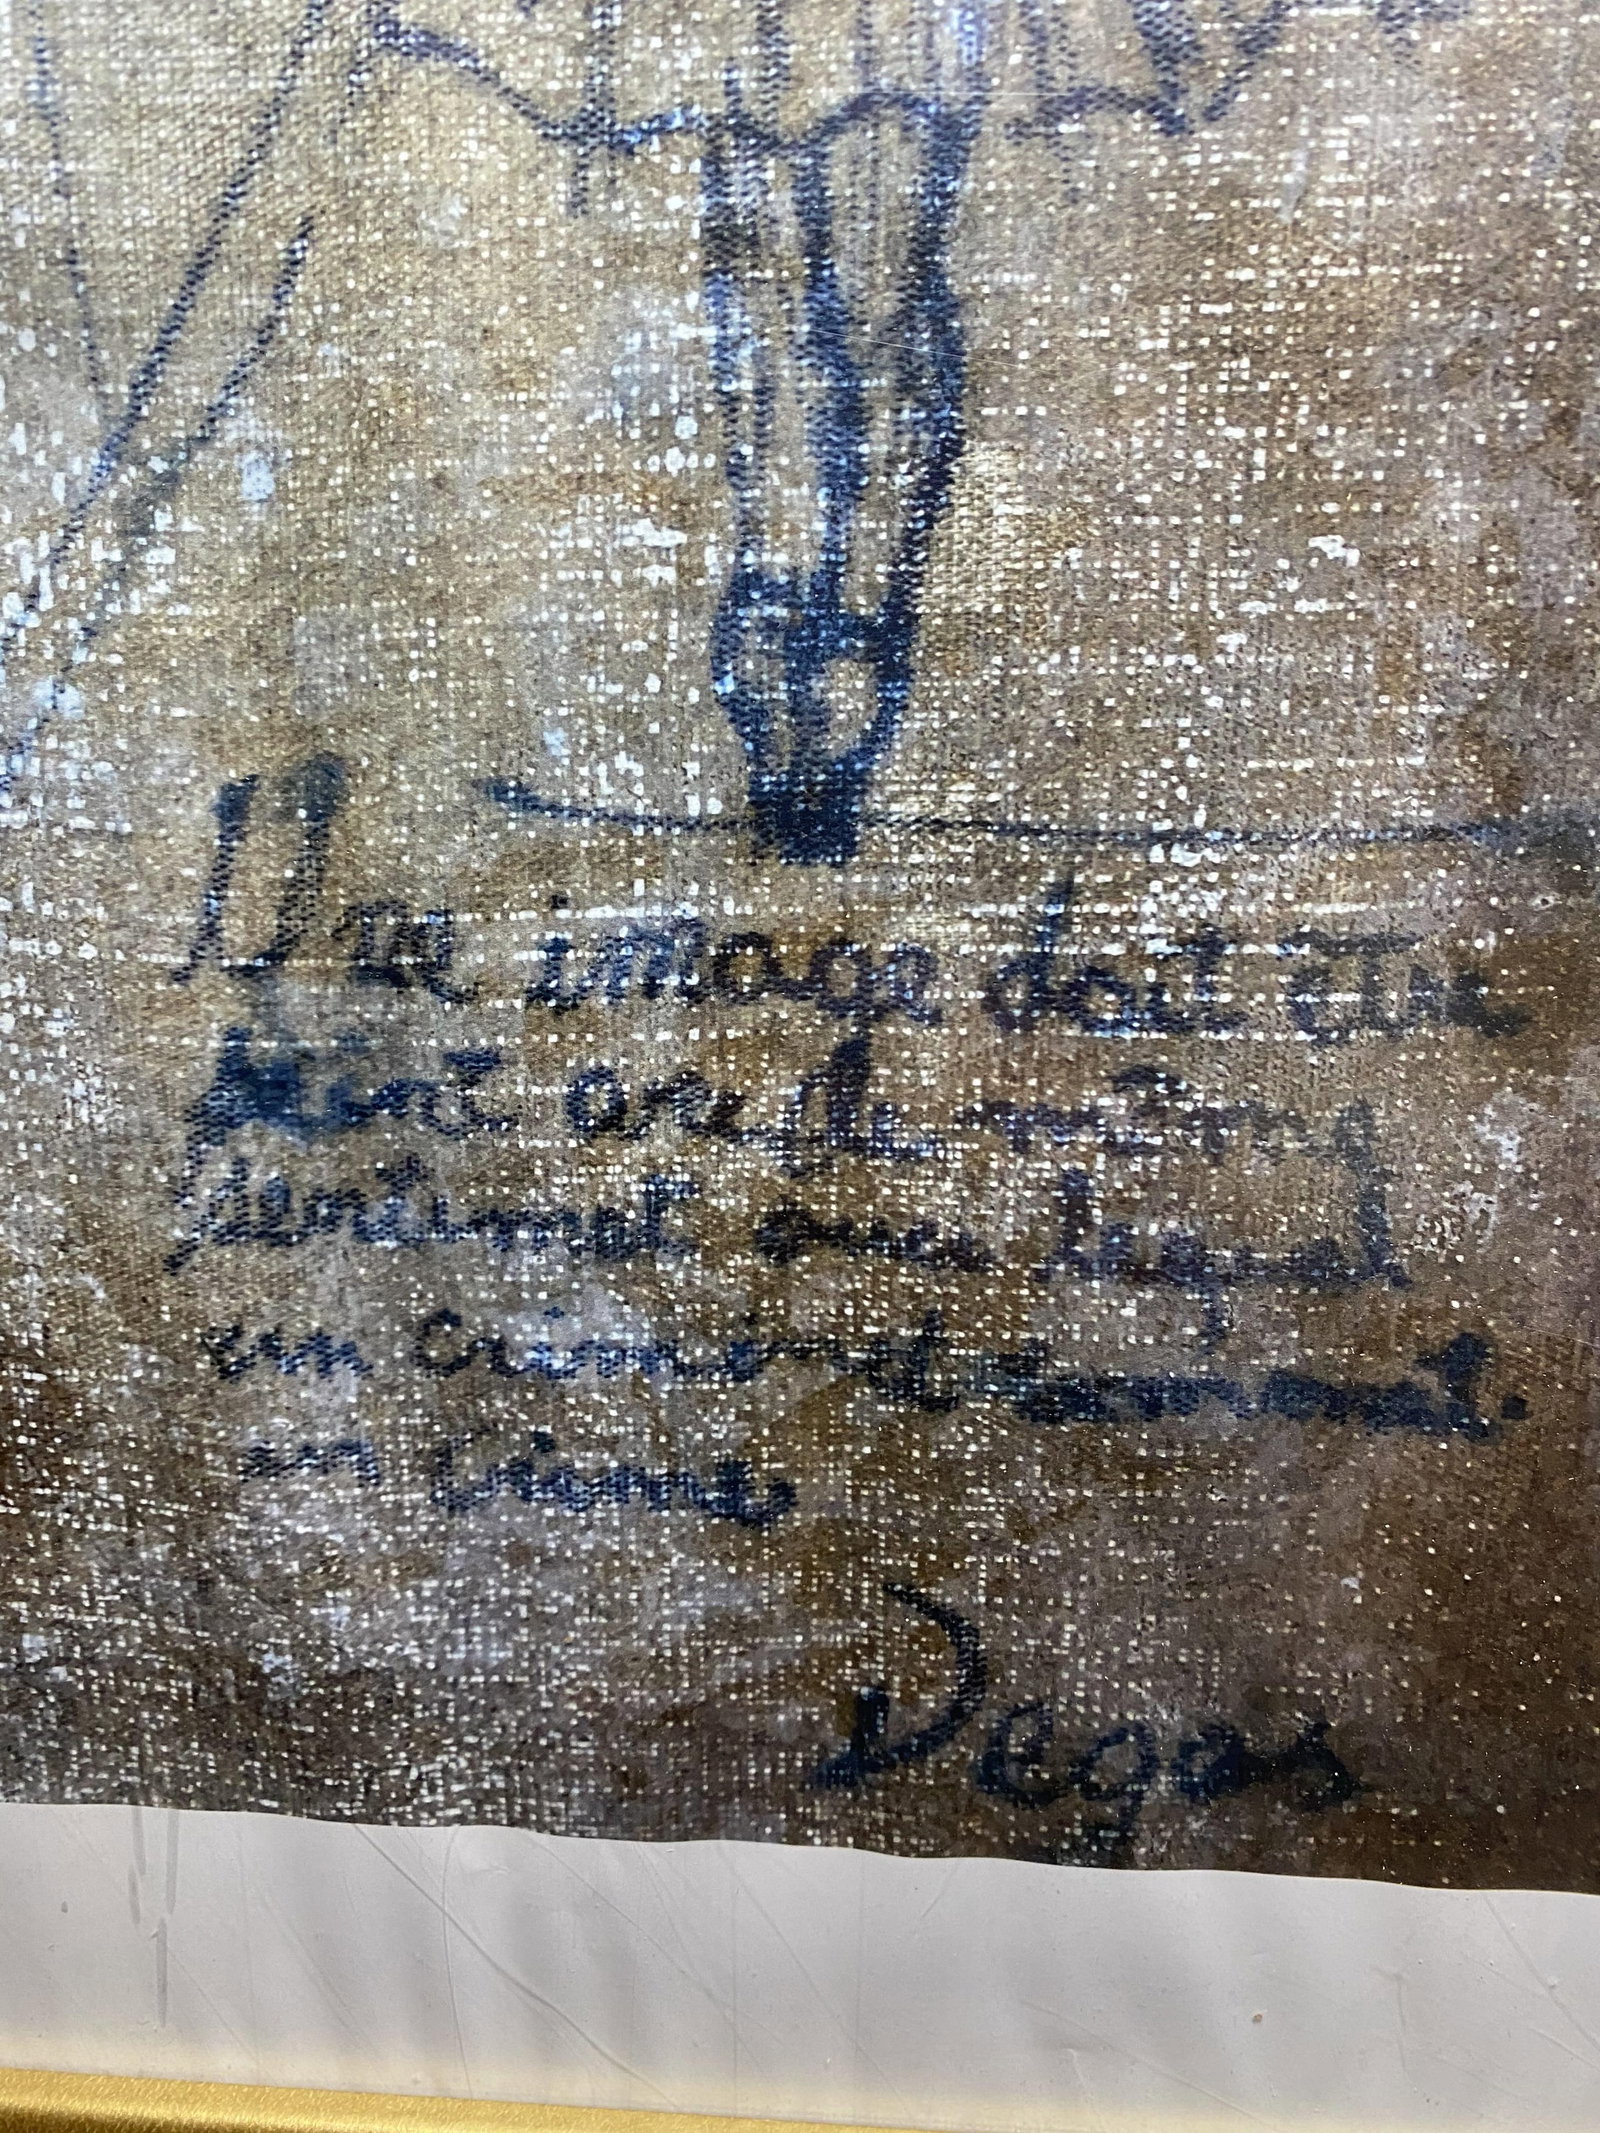 Une image doit être
peint on de même
sentiment avec lequel
un criminel commet.
un crime
Degas